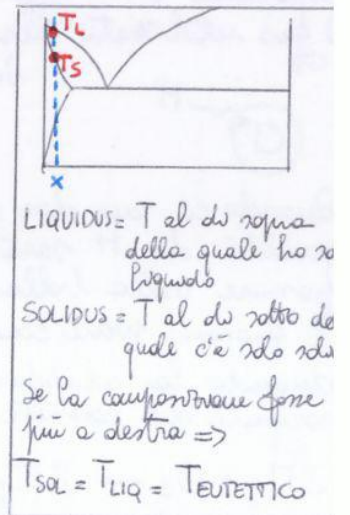 TL
TS
x
LIQUIDUS = T al di sopra
della quale ho so
liquido
SOLIDUS = T al di sotto de
quale c'è solo soli
Se la composizione fosse
più a destra =>
TSOL = TLIQ = TEUTETTICO